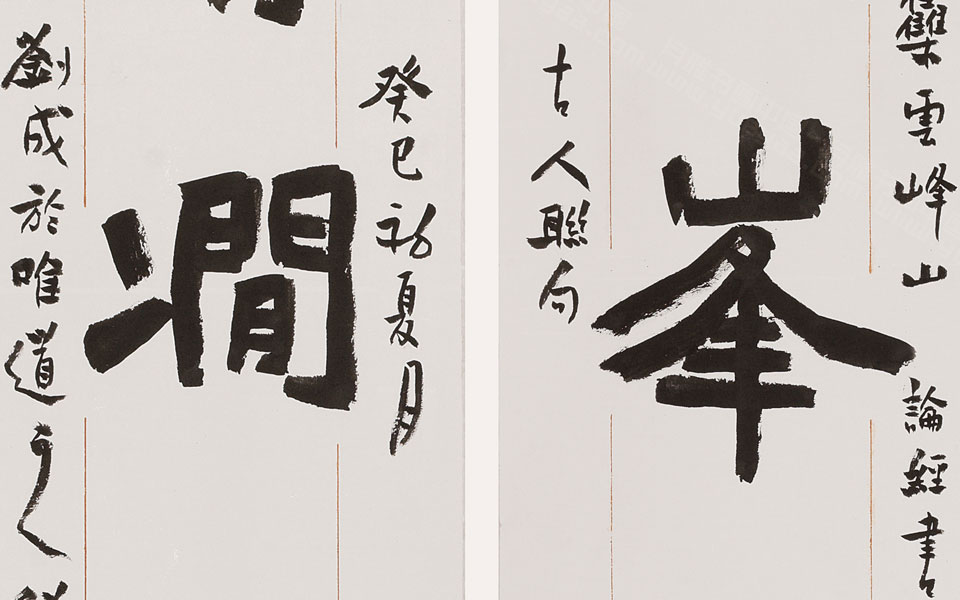 集雲峰山論經書
峯
古人聯句
癸巳初夏月
澗
劉成於唯道之